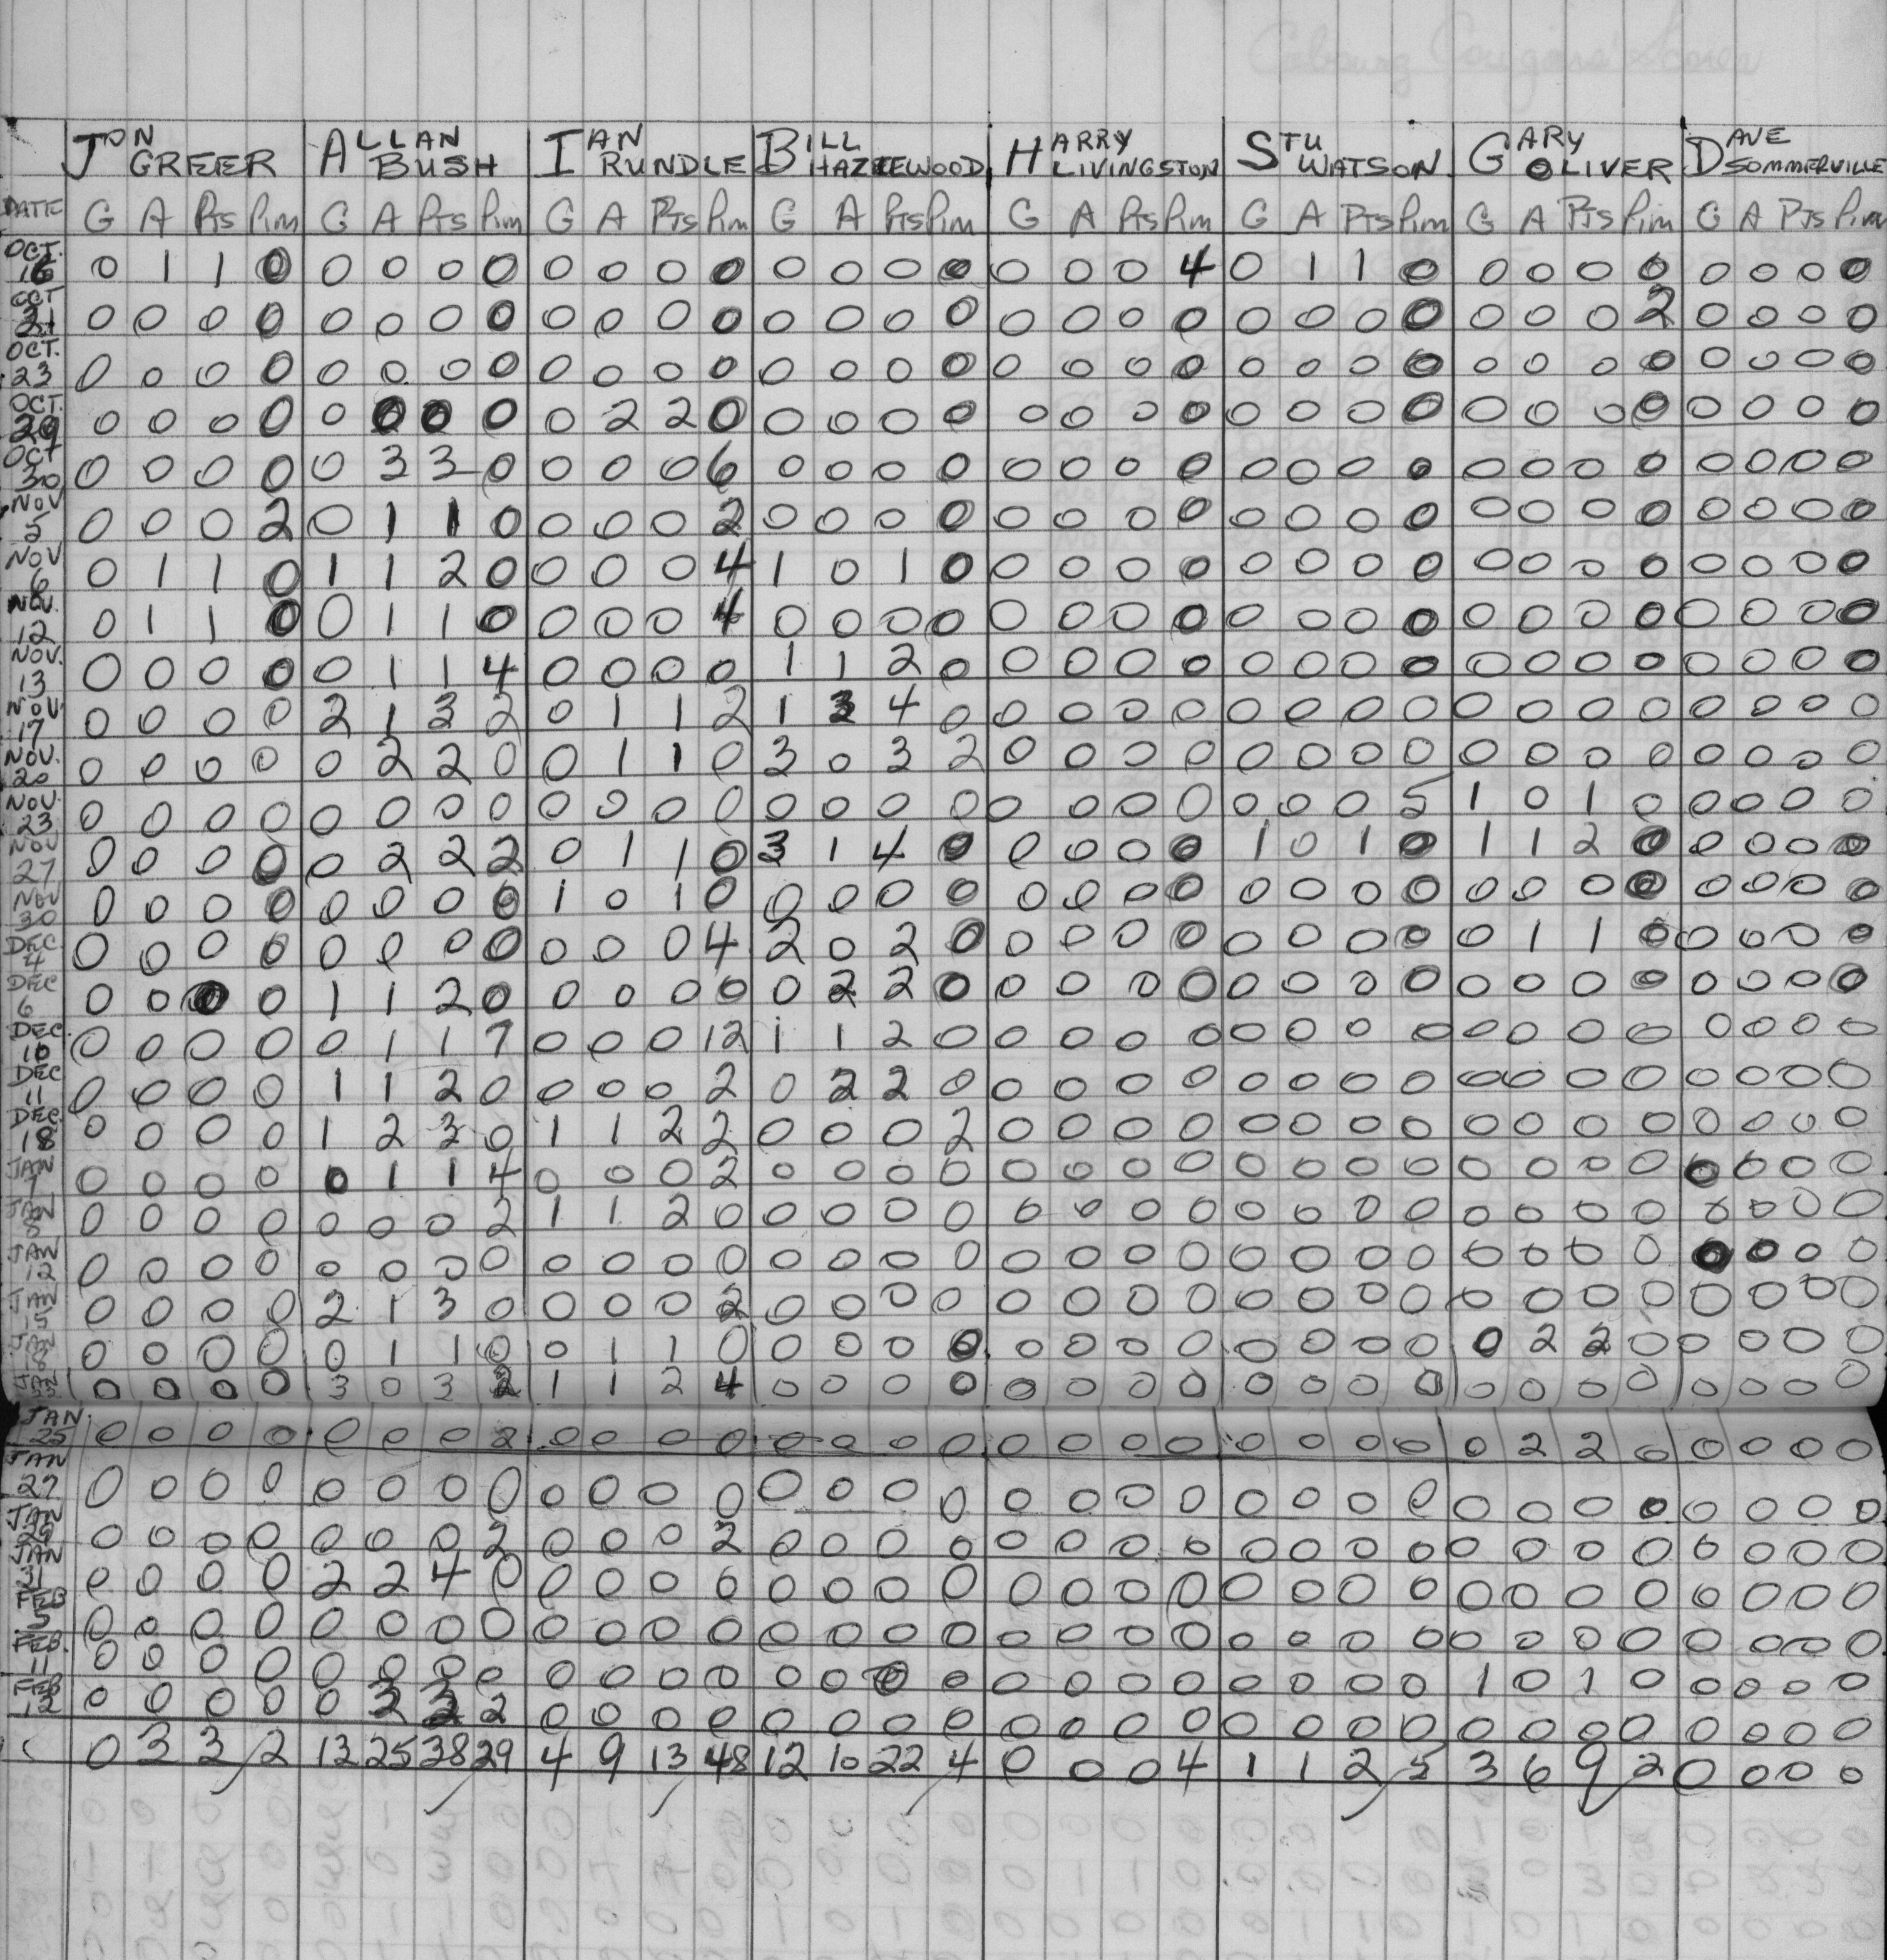 Cobourg Cougars' Scores
JON GREER ALLAN BUSH IAN RUNDLE BILL HAZELWOOD HARRY LIVINGSTON STU WATSON GARY OLIVER DAVE SOMMERVILLE
DATE G A Pts Pim G A Pts Pim G A Pts Pim G A Pts Pim G A Pts Pim G A Pts Pim G A Pts Pim G A Pts Pim
OCT. 16 0 1 1 0 0 0 0 0 0 0 0 0 0 0 0 0 0 0 0 4 0 1 1 0 0 0 0 0 0 0 0 0
OCT 21 0 0 0 0 0 0 0 0 0 0 0 0 0 0 0 0 0 0 0 0 0 0 0 0 0 0 0 2 0 0 0 0
OCT. 23 0 0 0 0 0 0 0 0 0 0 0 0 0 0 0 0 0 0 0 0 0 0 0 0 0 0 0 0 0 0 0 0
OCT. 29 0 0 0 0 0 0 0 0 0 2 2 0 0 0 0 0 0 0 0 0 0 0 0 0 0 0 0 0 0 0 0 0
OCT 30 0 0 0 0 0 3 3 0 0 0 0 6 0 0 0 0 0 0 0 0 0 0 0 0 0 0 0 0 0 0 0 0
NOV 5 0 0 0 2 0 1 1 0 0 0 0 2 0 0 0 0 0 0 0 0 0 0 0 0 0 0 0 0 0 0 0 0
NOV 6 0 1 1 0 1 1 2 0 0 0 0 4 1 0 1 0 0 0 0 0 0 0 0 0 0 0 0 0 0 0 0 0
NOV. 12 0 1 1 0 0 1 1 0 0 0 0 4 0 0 0 0 0 0 0 0 0 0 0 0 0 0 0 0 0 0 0 0
NOV. 13 0 0 0 0 0 1 1 4 0 0 0 0 1 1 2 0 0 0 0 0 0 0 0 0 0 0 0 0 0 0 0 0
NOV. 17 0 0 0 0 2 1 3 2 0 1 1 2 1 3 4 0 0 0 0 0 0 0 0 0 0 0 0 0 0 0 0 0
NOV. 20 0 0 0 0 0 2 2 0 0 1 1 0 3 0 3 2 0 0 0 0 0 0 0 0 0 0 0 0 0 0 0 0
NOV. 23 0 0 0 0 0 0 0 0 0 0 0 0 0 0 0 0 0 0 0 0 0 0 0 5 1 0 1 0 0 0 0 0
NOV 27 0 0 0 0 0 2 2 2 0 1 1 0 3 1 4 0 0 0 0 0 1 0 1 0 1 1 2 0 0 0 0 0
NOV 30 0 0 0 0 0 0 0 0 1 0 1 0 0 0 0 0 0 0 0 0 0 0 0 0 0 0 0 0 0 0 0 0
DEC 4 0 0 0 0 0 0 0 0 0 0 0 4 2 0 2 0 0 0 0 0 0 0 0 0 0 1 1 0 0 0 0 0
DEC 6 0 0 0 0 1 1 2 0 0 0 0 0 0 2 2 0 0 0 0 0 0 0 0 0 0 0 0 0 0 0 0 0
DEC. 10 0 0 0 0 0 1 1 7 0 0 0 12 1 1 2 0 0 0 0 0 0 0 0 0 0 0 0 0 0 0 0 0
DEC 11 0 0 0 0 1 1 2 0 0 0 0 2 0 2 2 0 0 0 0 0 0 0 0 0 0 0 0 0 0 0 0 0
DEC. 18 0 0 0 0 1 2 3 0 1 1 2 2 0 0 0 2 0 0 0 0 0 0 0 0 0 0 0 0 0 0 0 0
JAN 1 0 0 0 0 0 1 1 4 0 0 0 2 0 0 0 0 0 0 0 0 0 0 0 0 0 0 0 0 0 0 0 0
JAN 8 0 0 0 0 0 0 0 2 1 1 2 0 0 0 0 0 0 0 0 0 0 0 0 0 0 0 0 0 0 0 0 0
JAN 12 0 0 0 0 0 0 0 0 0 0 0 0 0 0 0 0 0 0 0 0 0 0 0 0 0 0 0 0 0 0 0 0
JAN 15 0 0 0 0 2 1 3 0 0 0 0 2 0 0 0 0 0 0 0 0 0 0 0 0 0 0 0 0 0 0 0 0
JAN 18 0 0 0 0 0 1 1 0 0 1 1 0 0 0 0 0 0 0 0 0 0 0 0 0 0 2 2 0 0 0 0 0
JAN 0 0 0 0 3 0 3 2 1 1 2 4 0 0 0 0 0 0 0 0 0 0 0 0 0 0 0 0 0 0 0 0
JAN. 25 0 0 0 0 0 0 0 2 0 0 0 0 0 0 0 0 0 0 0 0 0 0 0 0 0 2 2 0 0 0 0 0
JAN 27 0 0 0 0 0 0 0 0 0 0 0 0 0 0 0 0 0 0 0 0 0 0 0 0 0 0 0 0 0 0 0 0
JAN 29 0 0 0 0 0 0 0 2 0 0 0 2 0 0 0 0 0 0 0 0 0 0 0 0 0 0 0 0 0 0 0 0
JAN 31 0 0 0 0 2 2 4 0 0 0 0 0 0 0 0 0 0 0 0 0 0 0 0 0 0 0 0 0 0 0 0 0
FEB 5 0 0 0 0 0 0 0 0 0 0 0 0 0 0 0 0 0 0 0 0 0 0 0 0 0 0 0 0 0 0 0 0
FEB. 11 0 0 0 0 0 0 0 0 0 0 0 0 0 0 0 0 0 0 0 0 0 0 0 0 1 0 1 0 0 0 0 0
FEB 12 0 0 0 0 0 3 3 2 0 0 0 0 0 0 0 0 0 0 0 0 0 0 0 0 0 0 0 0 0 0 0 0
0 3 3 2 13 25 38 29 4 9 13 48 12 10 22 4 0 0 0 4 1 1 2 5 3 6 9 2 0 0 0 0